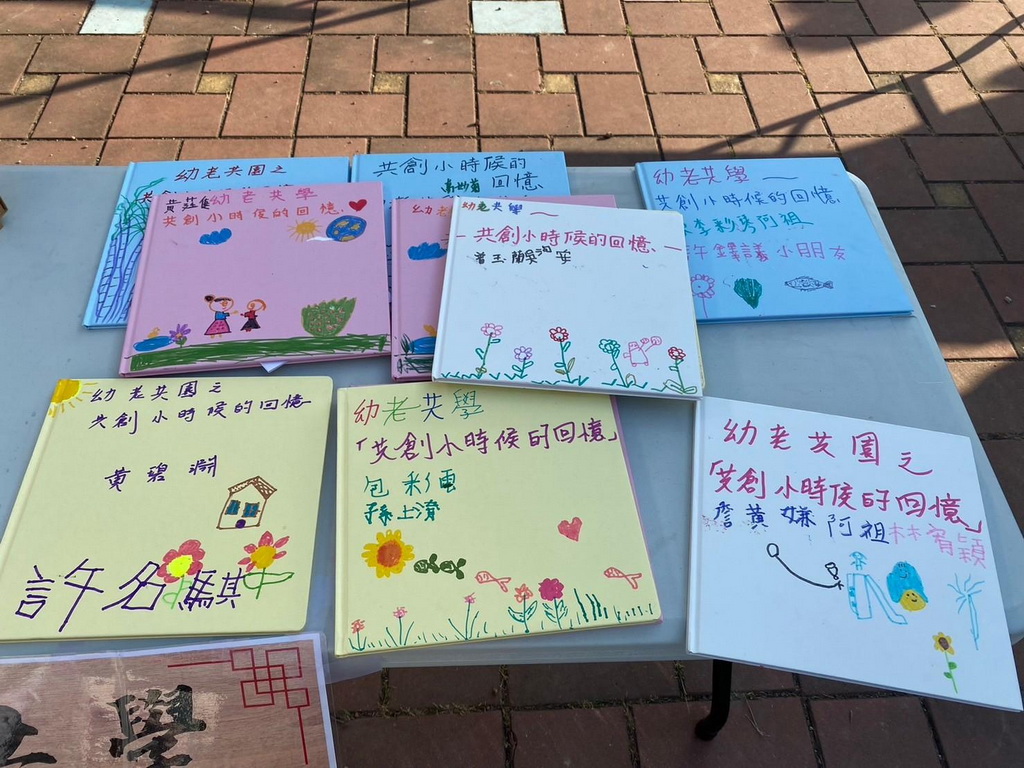 幼老共園之
共創小時候的
回憶
幼老共學
共創小時候的回憶
李彩琴阿祖
許鐸議小朋友
幼老共學
共創小時候的回憶
幼老共學
共創小時候的回憶
幼老共園之
共創小時候的回憶
黃碧
許名騏
幼老共學
「共創小時候的回憶」
包彩雲
孫上濱
幼老共園之
「共創小時侯的回憶」
詹黃嫌阿祖林宥穎
學